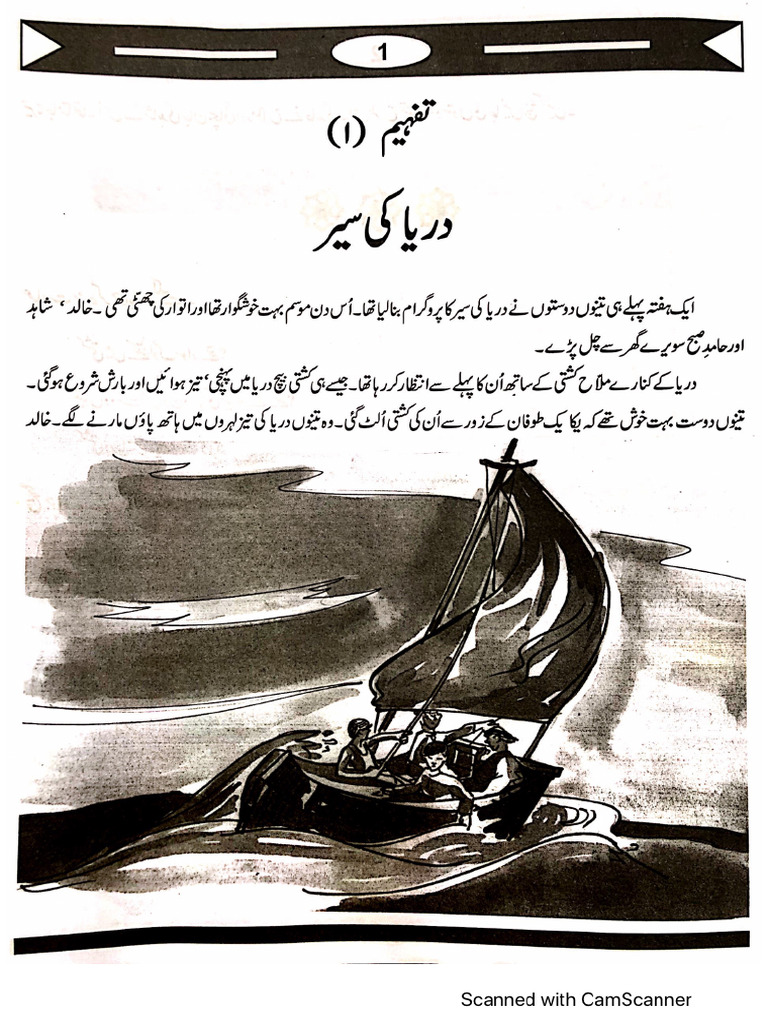 1
تفہیم (۱)
دریا کی سیر
ایک ہفتہ پہلے ہی تینوں دوستوں نے دریا کی سیر کا پروگرام بنا لیا تھا۔ اُس دن موسم بہت خوشگوار تھا اور اتوار کی چھٹّی تھی ۔ خالد ، شاہد
اور حامد صبح سویرے گھر سے چل پڑے ۔
دریا کے کنارے ملاّح کشتی کے ساتھ اُن کا پہلے سے انتظار کر رہا تھا۔ جیسے ہی کشتی بیچ دریا میں پہنچی، تیز ہوائیں اور بارش شروع ہو گئی ۔
تینوں دوست بہت خوش تھے کہ یکایک طوفان کے زور سے اُن کی کشتی اُلٹ گئی۔ وہ تینوں دریا کی تیز لہروں میں ہاتھ پاؤں مارنے لگے۔ خالد
Scanned with CamScanner